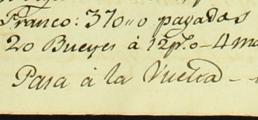 Franco: 370..0 payadas
20 Bueyes á 12p.o - 4 ma
Pasa á la Vuelta -